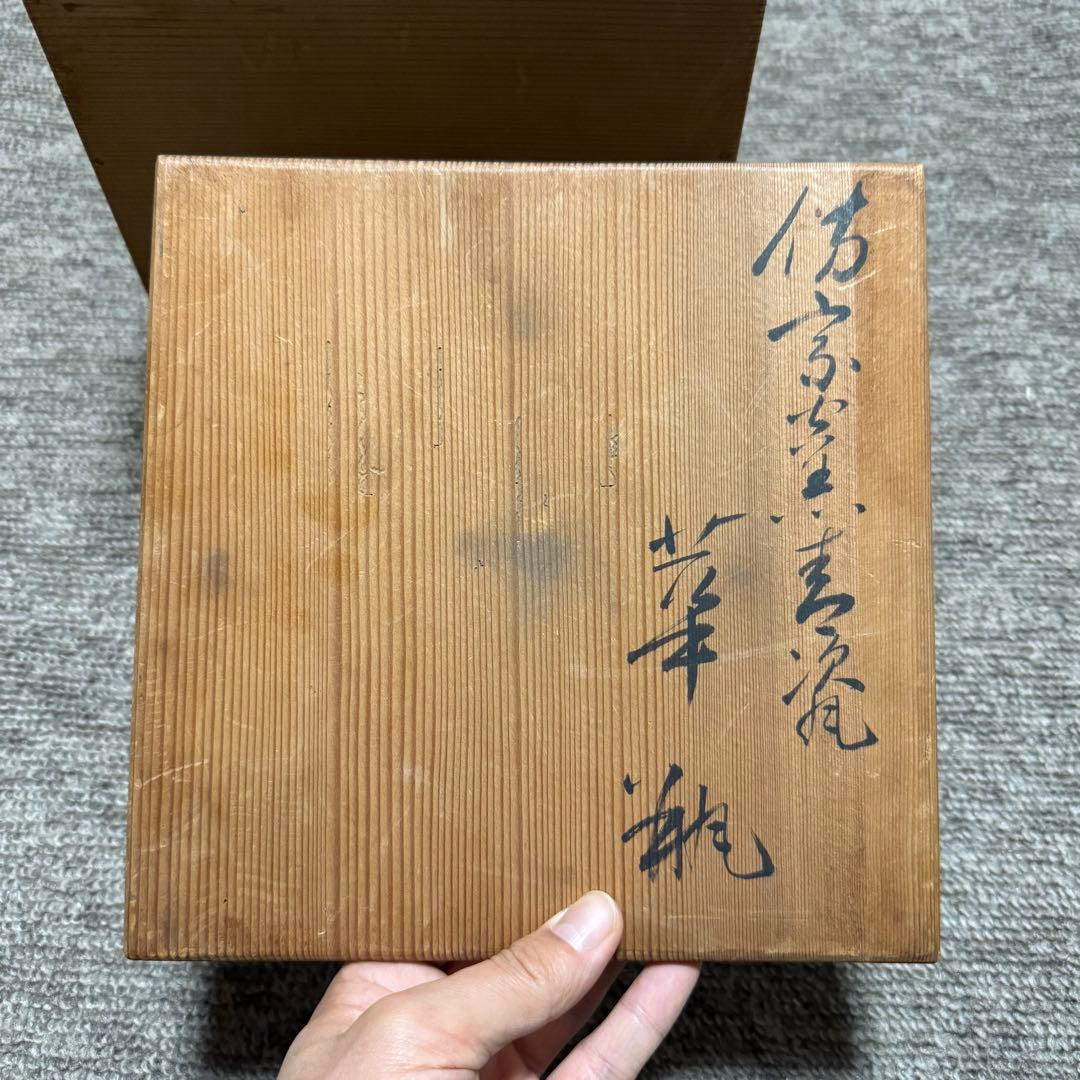 倣宋窯青瓷
華瓶